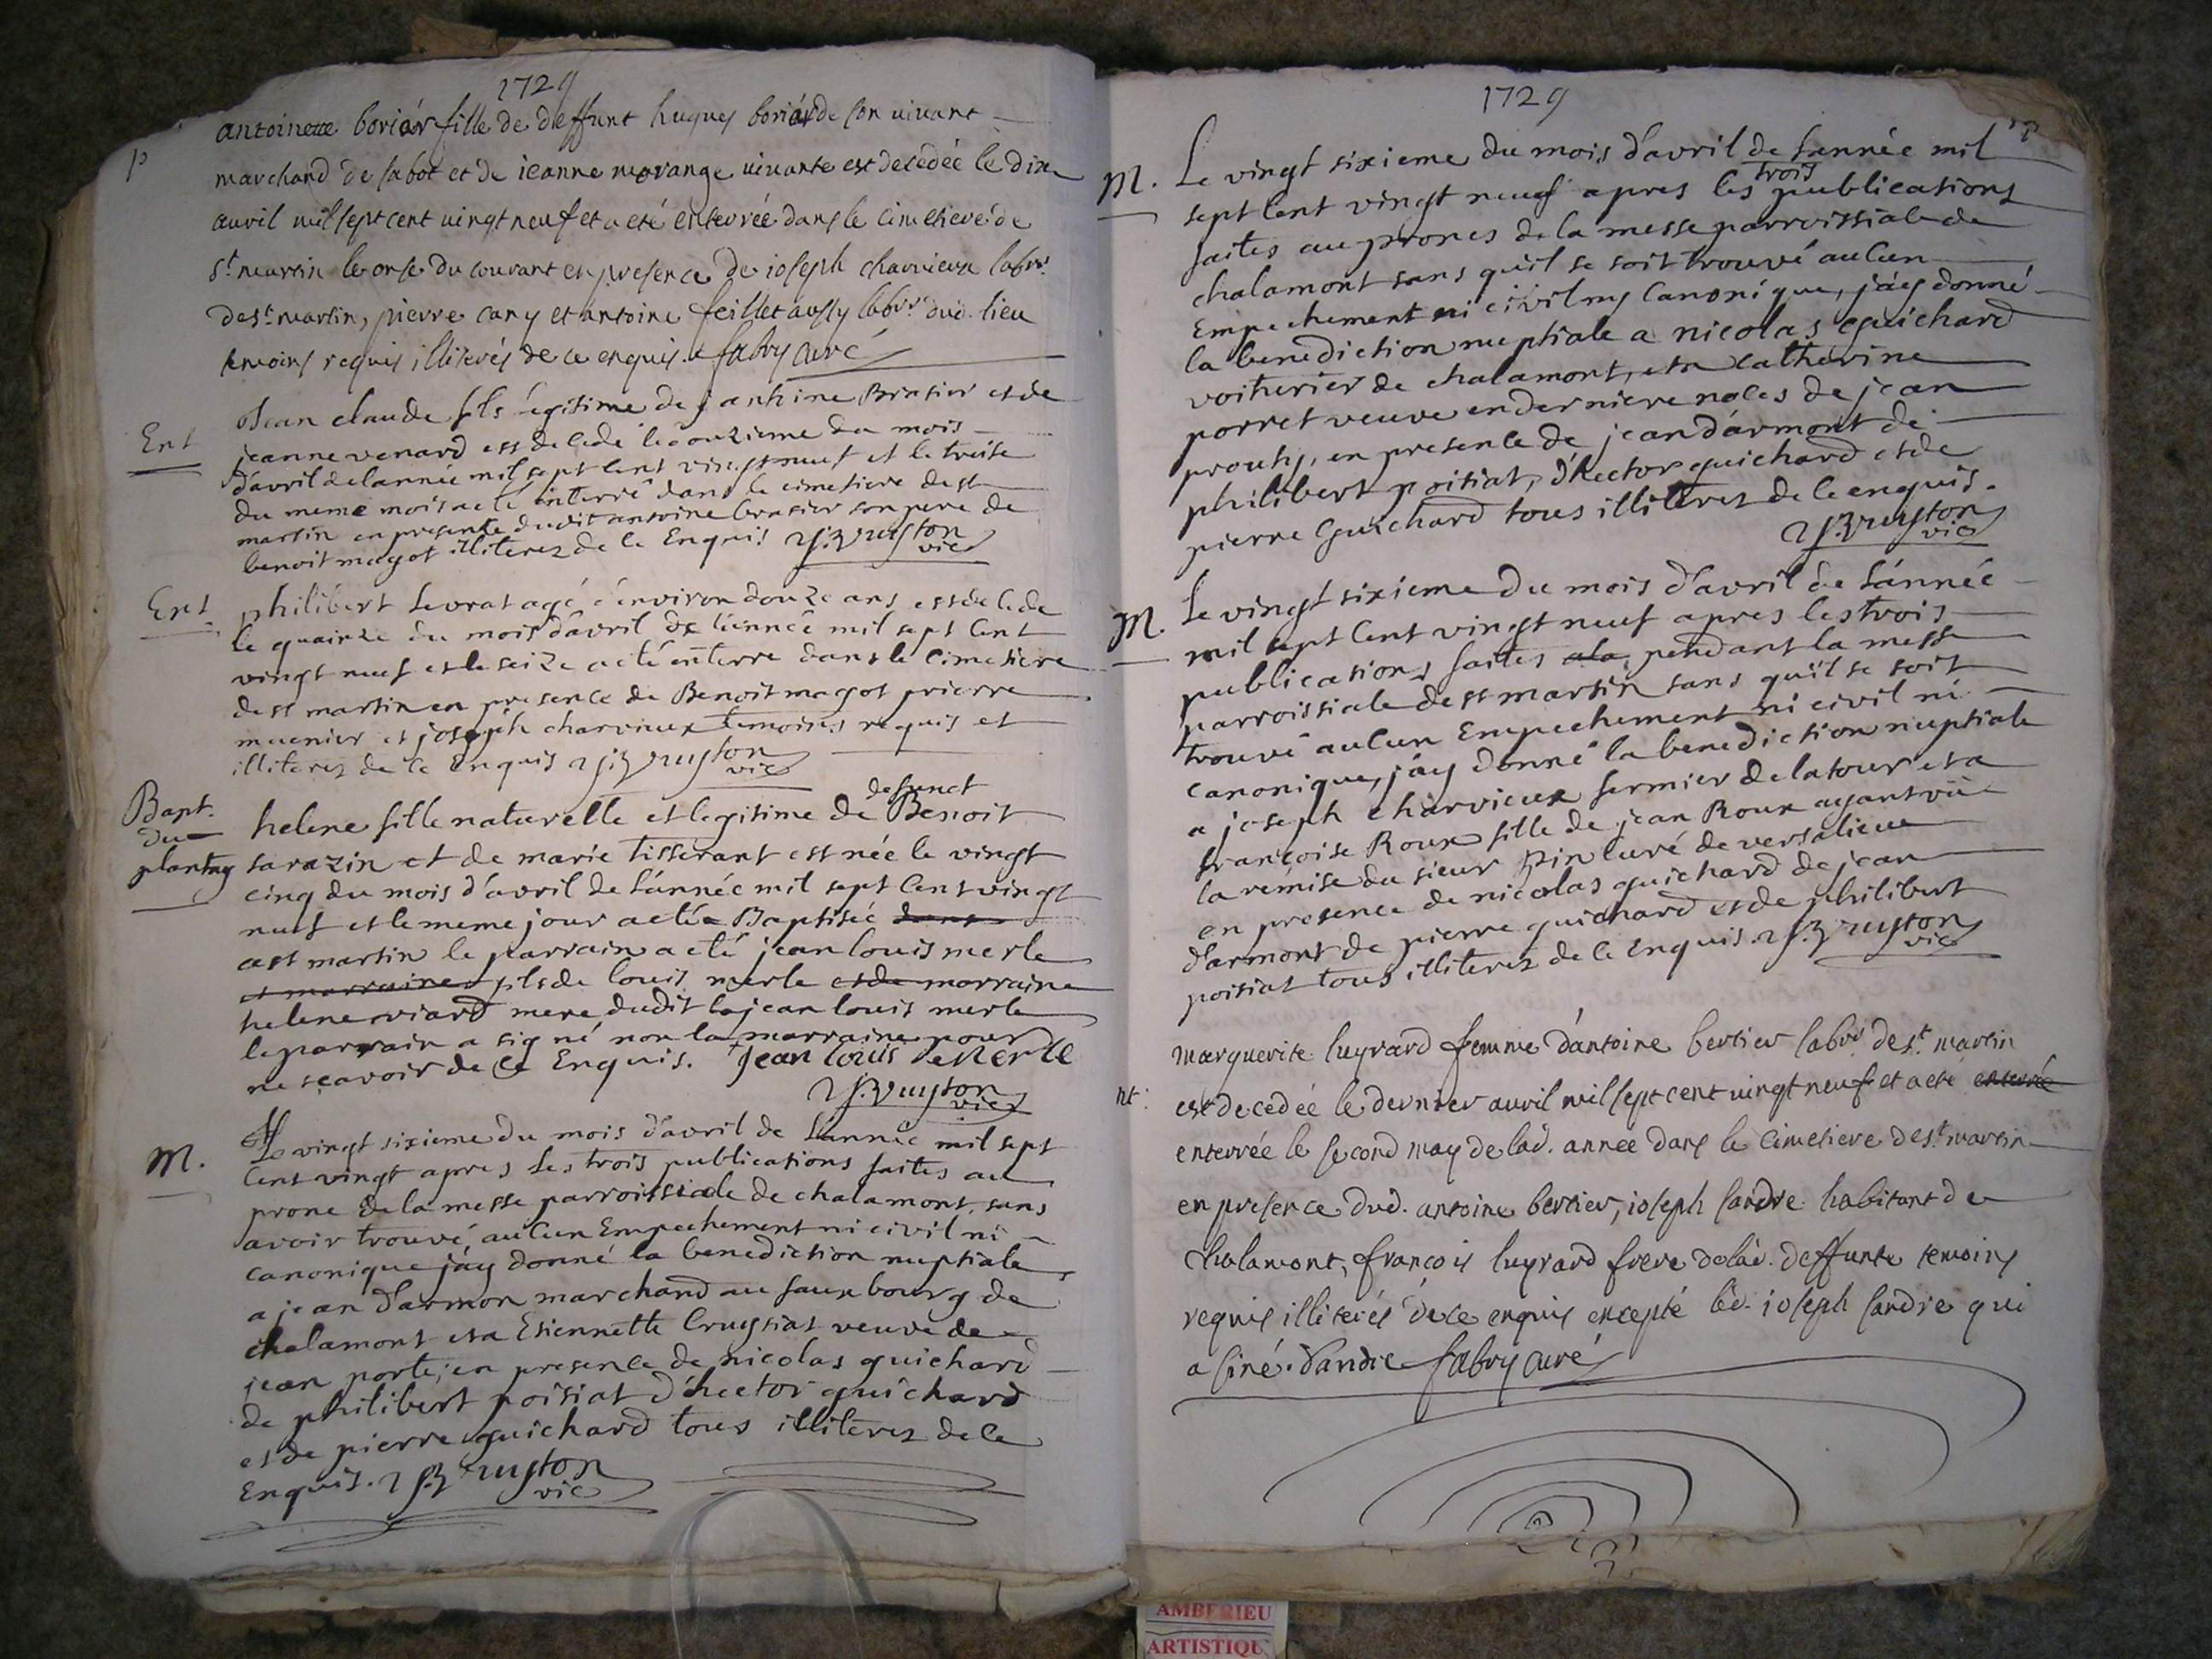 1729
antoinette boriar fille de deffunt hugues boriar de son vivant
marchand de sabot et de ieanne morange vivante est decedée le dix
avril mil sept cent vingt neuf et a eté enterrée dans le cimetiere de
st martin le onse du courant en presence de ioseph charvieux labr
de st martin, pierre cany et antoine feillet aussy labr dud. lieu
temoins requis illiterés de ce enquis. fabry curé
Ent
Jean claude fils legitime de anthine Brasier et de
jeanne venard est decedé le douzieme du mois
d'avril de lannée mil sept cent vingt neuf et le treise
du meme mois a eté interré dans le cimetiere de st
martin en presente dudit antoine brasier son pere de
benoit magot illiterez de ce Enquis J. Bruyston
vic
Ent
philibert levrat agé d'environ douze ans est decede
le quainze du mois d'avril de l'année mil sept cent
vingt neuf et le seize a eté enterre dans le cimetiere
de st martin en presence de Benoit magot prierre
meunier et joseph charvieux temoins requis et
illiterez de ce Enquis J. Bruyston
vic
Bapt.
du
plantay
defunct
helene fille naturelle et legitime de Benoit
sarazin et de marie tisserant est née le vingt
cinq du mois d'avril de l'année mil sept cent vingt
neuf et le meme jour a eté Baptisée dans
a st martin le parrain a eté jean louis merle
et marraine fils de louis merle et de marraine
helene viard mere dudit jean louis merle
le parrain a signé non la marraine pour
ne sçavoir de ce Enquis. Jean Louis Merle
J. Bruyston
vic
M.
Le vingt sixieme du mois d'avril de l'année mil sept
cent vingt apres les trois publications faites au
prone de la messe parroissiale de chalamont, sans
avoir trouvé aucun Empechement ni civil ni
canonique j'ay donné la benediction nuptiale
a jean d'armon marchand au faux bourg de
chalamont et a Etiennette Cruysiat veuve de
jean porte, en presence de nicolas guichard
de philibert poisiat d'hector guichard
et de pierre guichard tous illiterez de ce
Enquis. J. Bruyston
vic
1729
M.
Le vingt sixieme du mois d'avril de l'année mil
trois
sept cent vingt neuf apres les publications
faites au prones de la messe parroissiale de
chalamont sans qu'il se soit trouvé aucun
Empechement ni civil ny canonique, j'ay donné
la benediction nuptiale a nicolas guichard
voiturier de chalamont, et a catherine
porret veuve en derniere noces de jean
prouty, en presence de jean d'armont de
philibert poisiat, d'hector guichard et de
pierre guichard tous illiterez de ce enquis.
J. Bruyston
vic
M.
Le vingt sixieme du mois d'avril de l'année
mil sept cent vingt neuf apres les trois
publications faites a la pendant la messe
parroissiale de st martin sans qu'il se soit
trouvé aucun Empechement ni civil ni
canonique, j'ay donné la benediction nuptiale
a joseph charvieux fermier de la tour et a
françoise Roux fille de jean Roux ayant vû
la remise du sieur pin curé de versalieux
en presence de nicolas guichard de jean
d'armont de pierre guichard et de philibert
poisiat tous illiterez de ce Enquis. J. Bruyston
vic
nt.
marguerite luyrard femme d'antoine bertier labr de st martin
est decedée le dernier avril mil sept cent vingt neuf et a eté enterrée
enterrée le second may de lad. annee dans le cimetiere de st martin
en presence dud. antoine bertier, ioseph sandre habitant de
chalamont, francois luyrard frere de lad. deffunte temoins
requis illiterés de ce enquis excepté led. ioseph sandre qui
a siné. Sandre fabry curé
AMBERIEU
ARTISTIQU